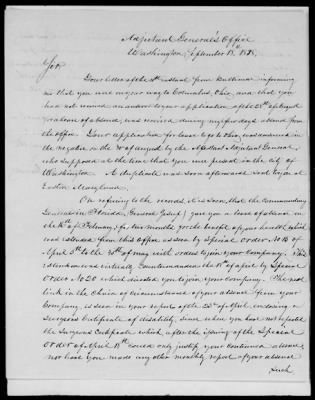 Adjutant General's Office
Washington, September 18th 1838.
Sir,
Your letter of the instant from Baltimore informing
me that you are on your way to Columbus, Ohio, and that you
have not received an answer to your application of the 28th of August
for a leave of absence, was received during my few days absence from
the office. Your application for leave up to Ohio, was answered in
the negative on the & assigned by the Assistant Adjutant General,
who supposed at the time that you were present in the city of
Washington. A duplicate was soon afterwards sent to you at
Easton Maryland.
On referring to the records, it is seen, that the Commanding
General in Florida, General Jesup, gave you a leave of absence on
the of February, for two months for the benefit of your health, which
was extended from this Office as seen by Special Order, No 13 of
April 5th to the 30th of May with orders to join your Company. This
extension was virtually Countermanded the 18th of April by Special
Order No 20 which directed you to join your Company. The next
link in the Chain of circumstances of your absence from your
Company, is seen in your report of the 25th of April, enclosing a
Surgeons Certificate of disability, since when you have not repeated
the Surgeons Certificate which, after the issuing of the Special
Order of April 18th could only justify your Continued absence,
nor have you made any other monthly report of your absence
Such